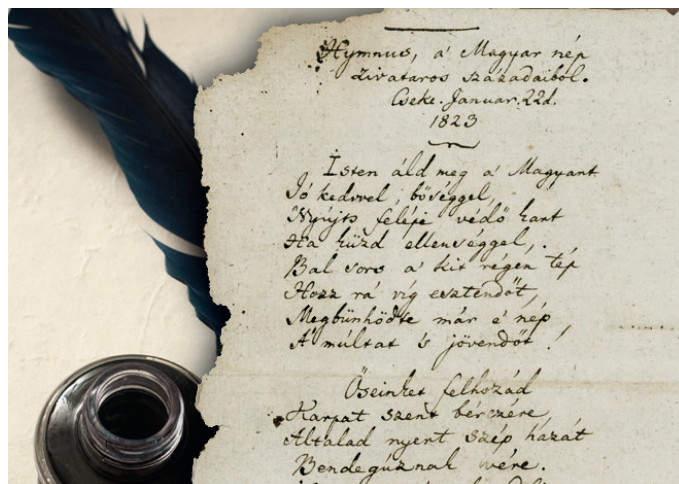 Hymnus, a' Magyar nép
zivataros századaiból.
Cseke. Januar. 22d.
1823
Isten áld meg a' Magyart
Jó kedvvel, bőséggel,
Nyújts feléje védő kart
Ha küzd ellenséggel,
Bal sors a' kit régen tép
Hozz rá víg esztendőt,
Megbűnhödte már e' nép
A' múltat 's jövendőt!
Őseinket felhozád
Kárpát szent bérczére,
Általad nyert szép hazát
Bendegúznak vére.